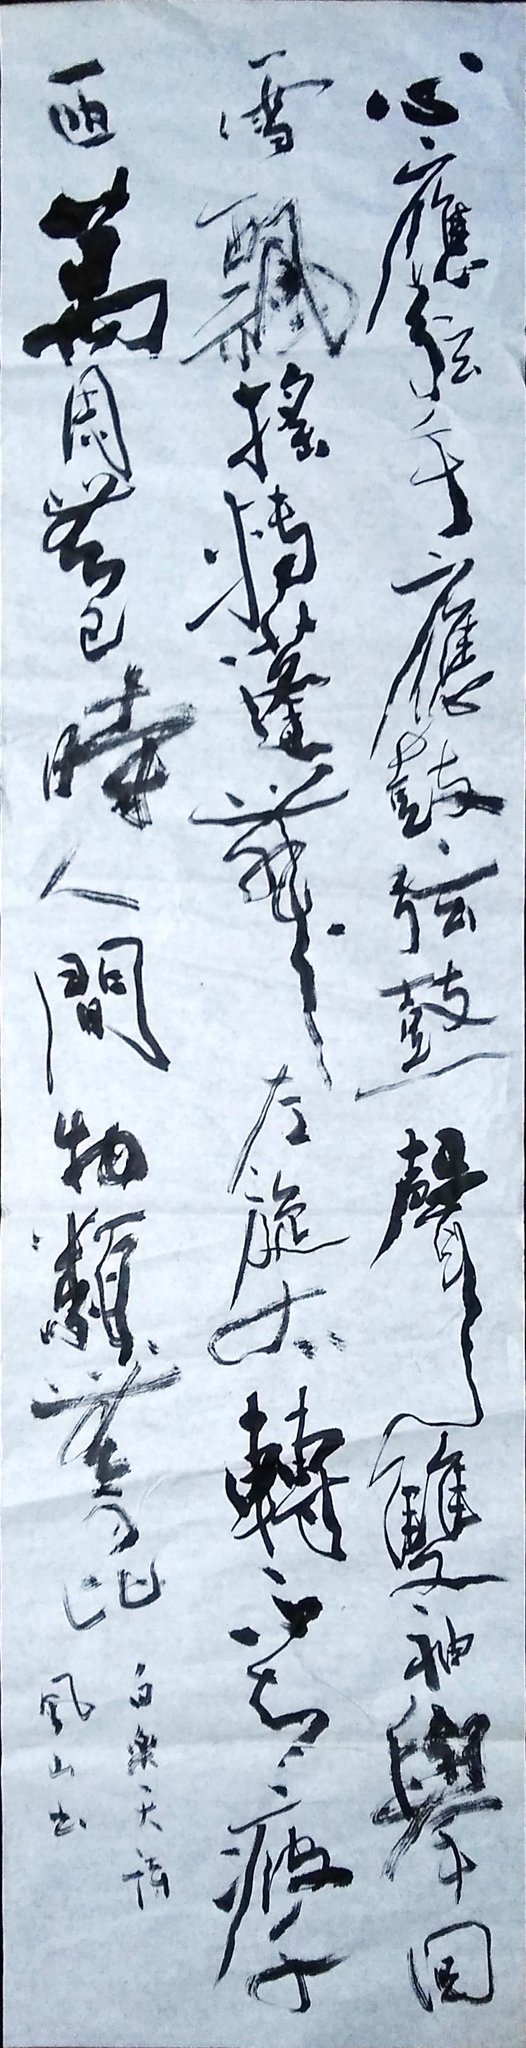 心應弦手應鼓弦鼓一聲雙袖舉回
雪飄搖轉蓬舞左旋右轉不知疲千
匝萬周無已時人間物類無可比
白樂天詩
風山書